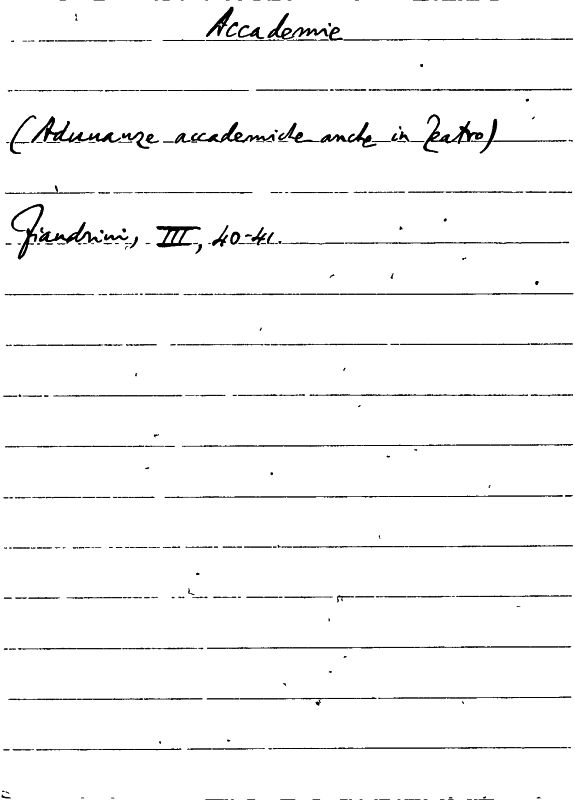 Accademie
(Adunanze accademiche anche in Teatro)
Fiandrini, III, 40-41.